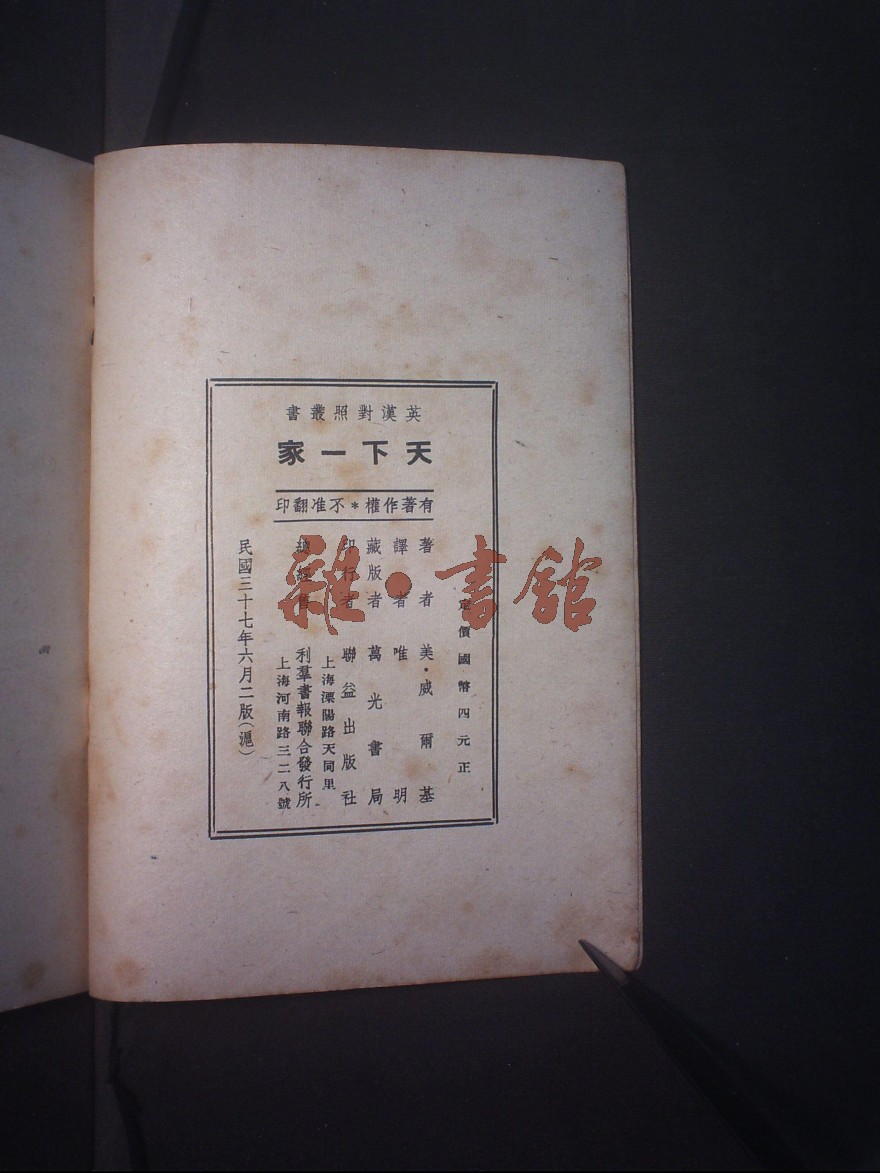 英漢對照叢書
天下一家
有著作權*不准翻印
定價國幣四元正
著者 美·威爾基
譯者 唯明
藏版者 萬光書局
印行者 聯益出版社
上海溧陽路天同里
總經售 利羣書報聯合發行所
上海河南路三二八號
民國三十七年六月二版(滬)
雜·書館